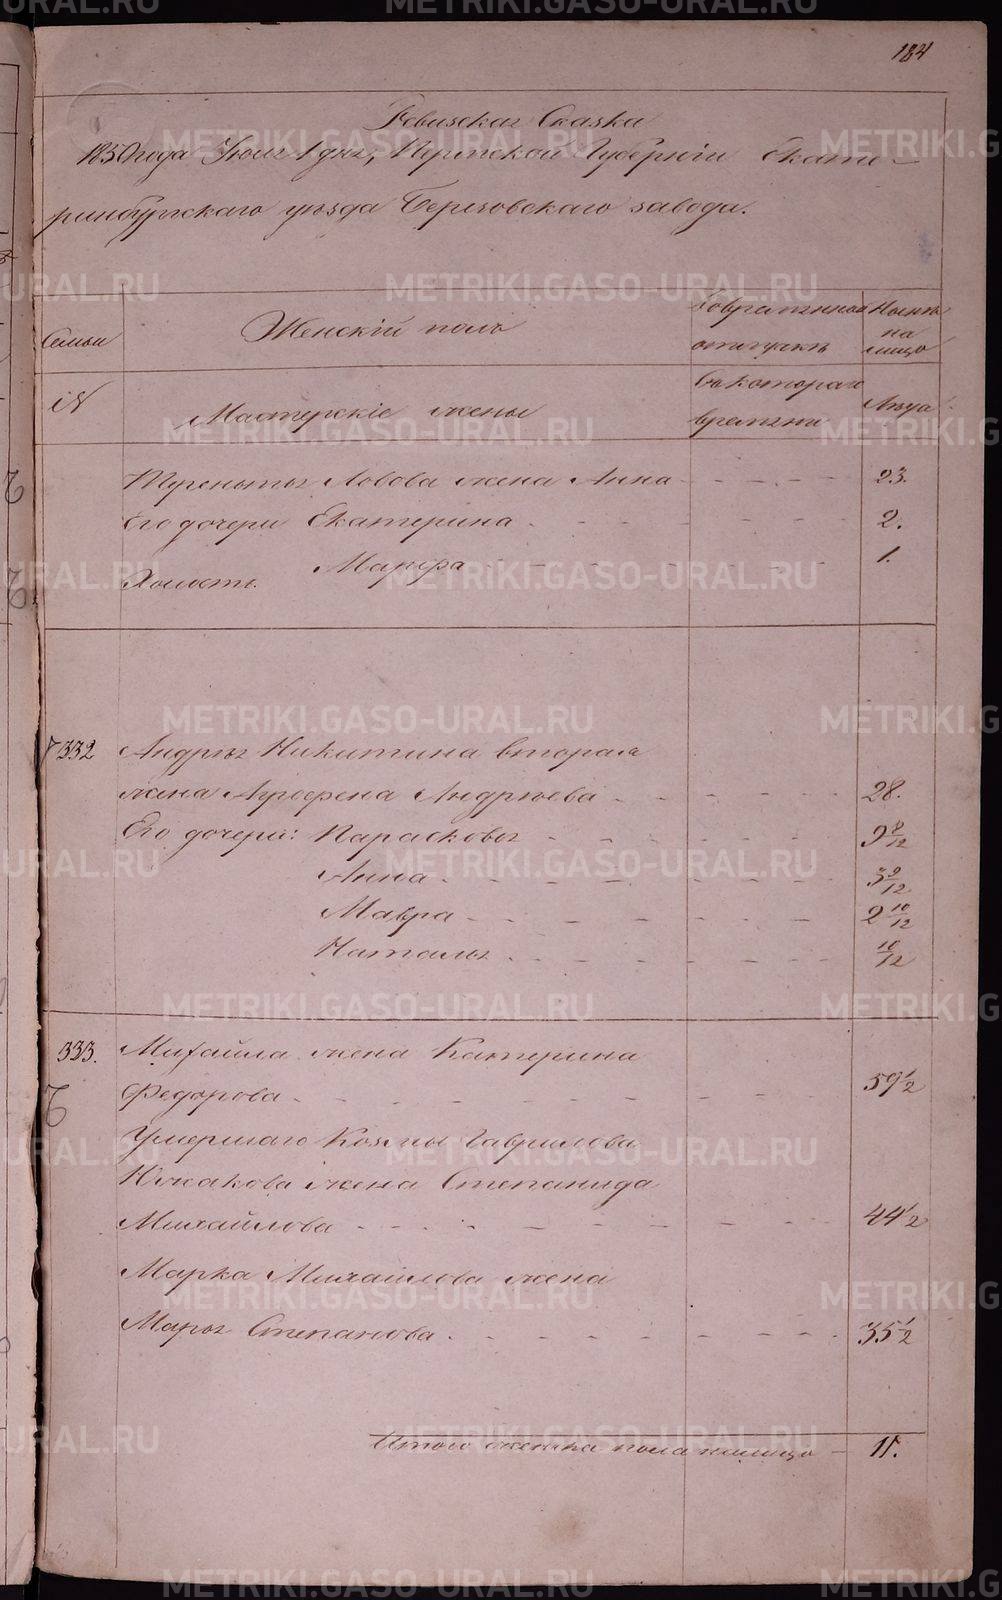 184
Ревизская Сказка
1850 года Июля 1 дня, Пермской Губернiи Екате-
ринбургскаго уѣзда Березовскаго завода.
Семьи
Женскiй полъ
Во временной
отлучкѣ
Нынѣ
на
лицо
№
Мастерскiе жены
Съ котораго
времени
Лѣта
Терентья Лобова жена Анна 23.
Его дочери Екатерина 2.
Марфа 1.
Холостъ.
332 Андрея Никитина вторая
жена Аграфена Андрѣева 28.
Его дочери: Парасковья 9 8/12
Анна 3 9/12
Мавра 2 10/12
Наталья 10/12
333. Михайла жена Катерина
Федорова 59 1/2
Умершаго Козмы Гаврилова
Южакова жена Степанида
Михайлова 44 1/2
Марка Михайлова жена
Марья Степанова 35 1/2
Итого женска пола налицо 11.
METRIKI.GASO-URAL.RU